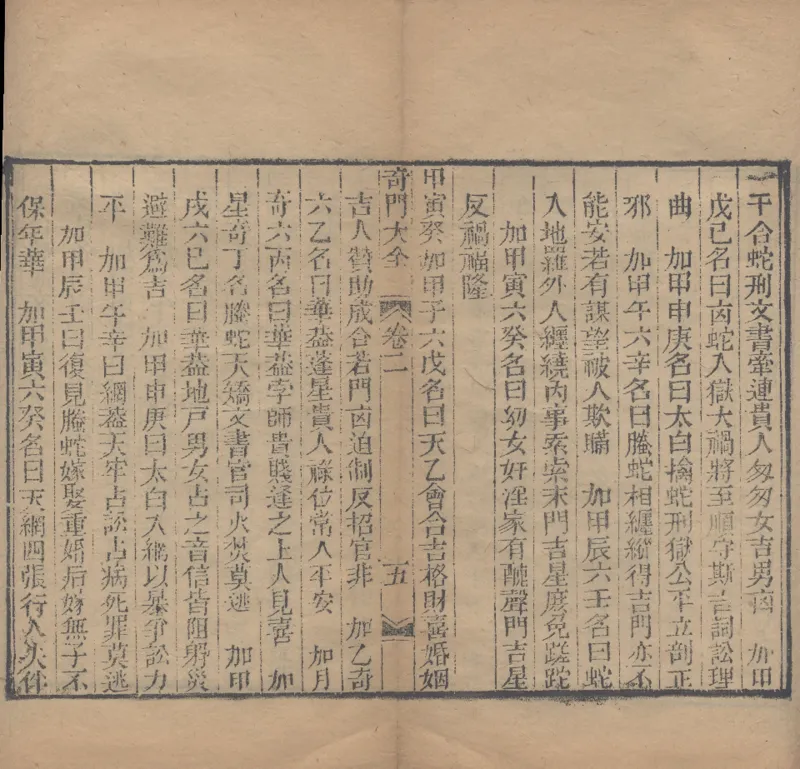 干合蛇刑文書牽連貴人匆匆女吉男凶　加甲
戊己名曰凶蛇入獄大禍將至順守斯吉詞訟理
曲　加甲申庚名曰太白擒蛇刑獄公平立剖正
邪　加甲午六辛名曰螣蛇相纏縱得吉門亦不
能安若有謀望被人欺瞞　加甲辰六壬名曰蛇
入地羅外人纏繞內事索索末門吉星庶免蹉跎
加甲寅六癸名曰幼女奸淫家有醜聲門吉星
反禍福隆
甲寅癸加甲子六戊名曰天乙會合吉格財喜婚姻
奇門大全　卷二　五
吉人贊助成合若門凶迫制反招官非　加乙奇
六乙名曰華葢蓬星貴人祿位常人平安　加月
奇六丙名曰華葢孛師貴賤逢之上人見喜　加
星奇丁名螣蛇天矯文書官司火焚莫逃　加甲
戌六巳名曰華葢地戸男女占之音信皆阻躱災
避難爲吉　加甲申庚曰太白入網以暴爭訟力
平　加甲午辛曰網葢天牢占訟占病死罪莫逃
加甲辰壬曰復見螣蛇嫁娶重婚后嫁無子不
保年華　加甲寅六癸名曰天網四張行人失伴